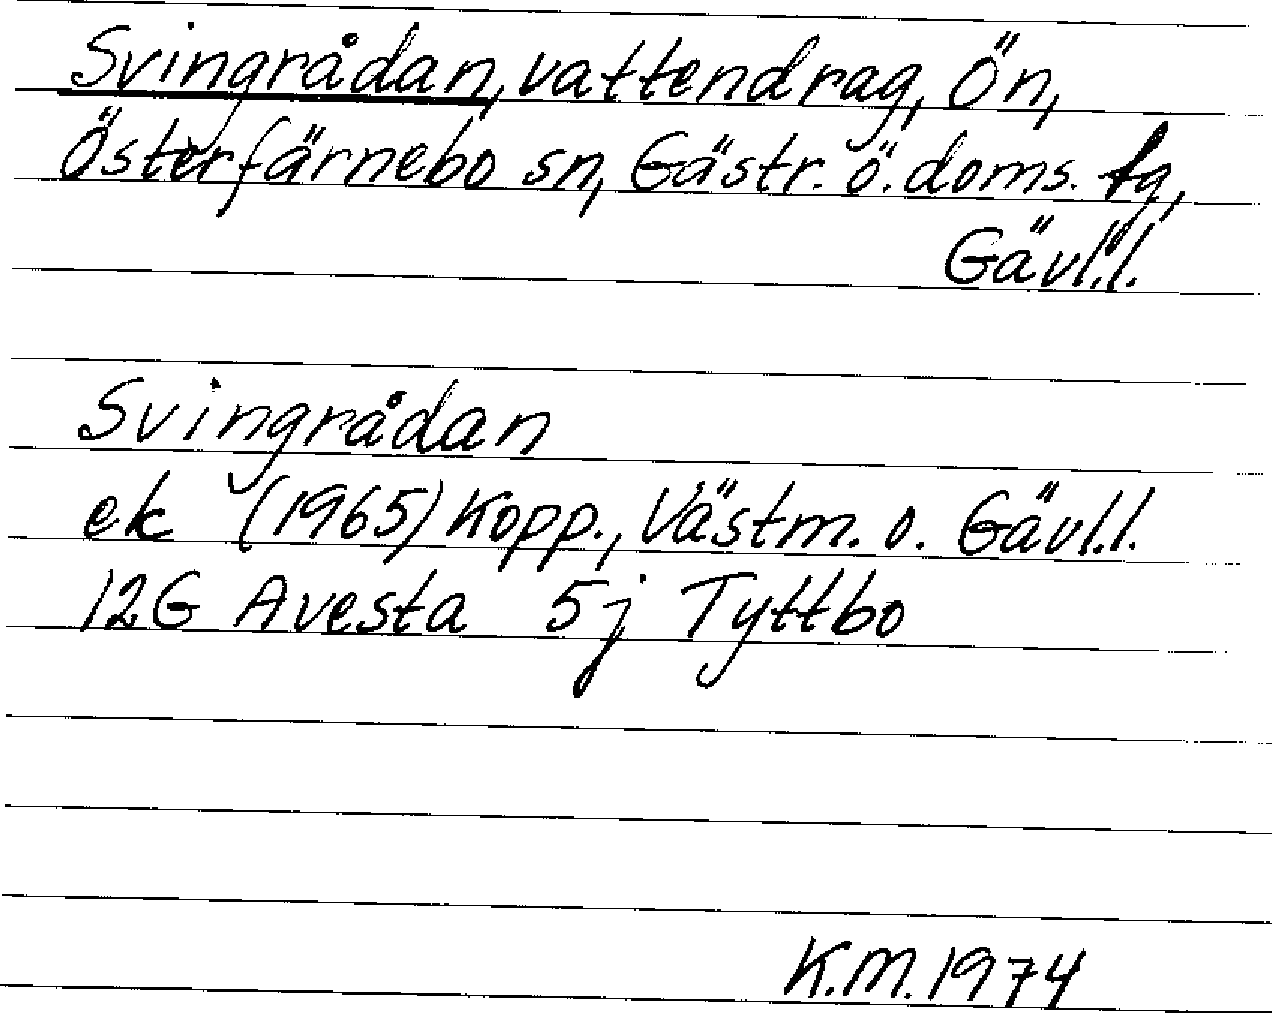 Svingrådan, vattendrag, Ön,
Österfärnebo sn, Gästr. ö. doms. fg,
Gävl.l.
Svingrådan
ek (1965) Kopp., Västm. o. Gävl.l.
12G Avesta 5j Tyttbo
K.M. 1974